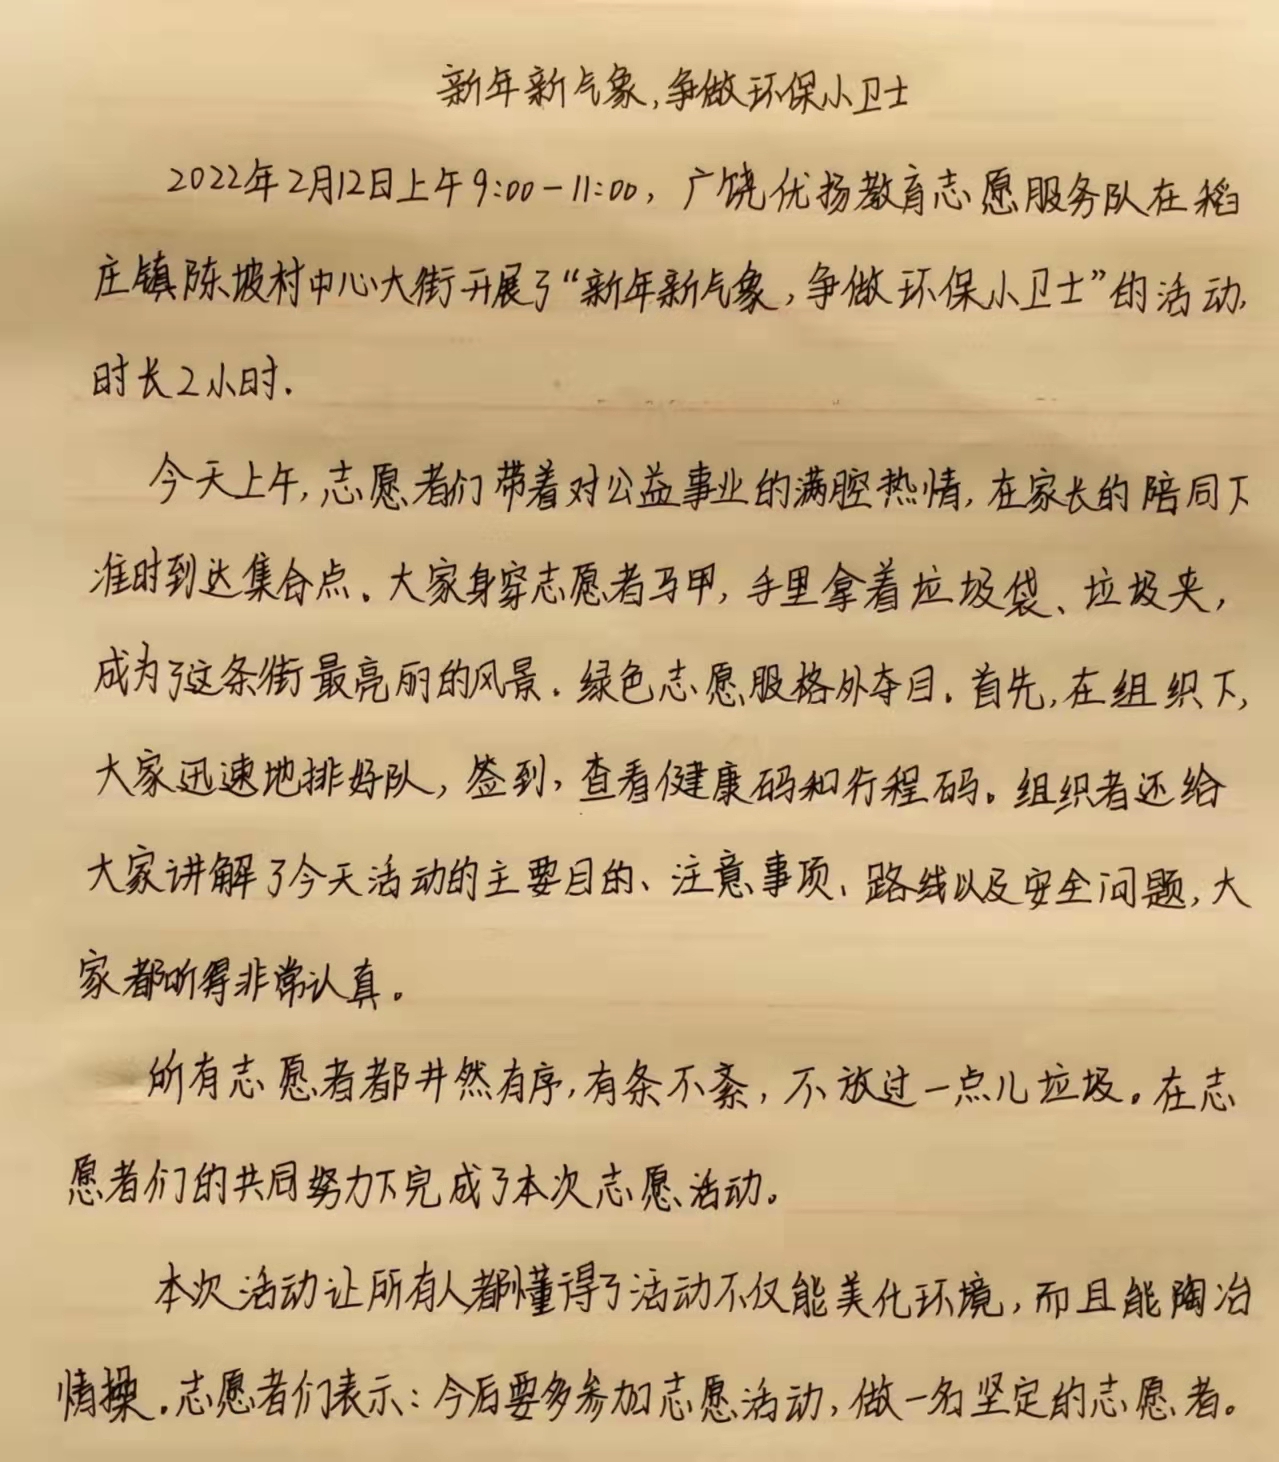 新年新气象,争做环保小卫士
2022年2月12日上午9:00-11:00,广饶优扬教育志愿服务队在稻
庄镇陈坡村中心大街开展了“新年新气象,争做环保小卫士”的活动,
时长2小时.
今天上午,志愿者们带着对公益事业的满腔热情,在家长的陪同下
准时到达集合点。大家身穿志愿者马甲,手里拿着垃圾袋、垃圾夹,
成为了这条街最亮丽的风景.绿色志愿服格外夺目.首先,在组织下,
大家迅速地排好队,签到,查看健康码和行程码。组织者还给
大家讲解了今天活动的主要目的、注意事项、路线以及安全问题,大
家都听得非常认真。
所有志愿者都井然有序,有条不紊,不放过一点儿垃圾。在志
愿者们的共同努力下完成了本次志愿活动。
本次活动让所有人都懂得了活动不仅能美化环境,而且能陶冶
情操.志愿者们表示:今后要多参加志愿活动,做一名坚定的志愿者。